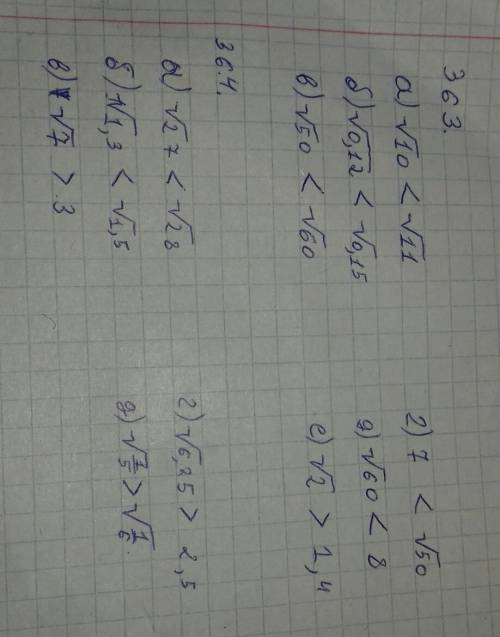 363.
а) √10 < √11
б) √0,12 < √0,15
в) √50 < √60
г) 7 < √50
д) √60 < 8
е) √2 > 1,4
364.
а) √27 < √28
б) √1,3 < √1,5
в) √7 > 3
г) √6,25 > 2,5
д) √1/5 > √1/6